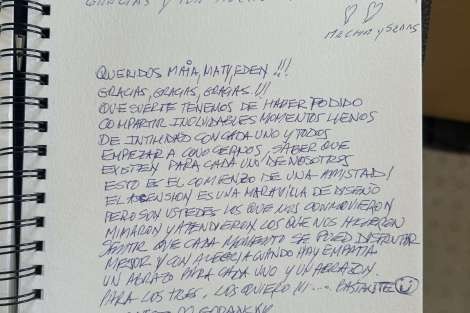 GRACIAS Y
MECHA Y
QUERIDOS MAIA, MATY, EDEN !!!
GRACIAS, GRACIAS, GRACIAS !!!
QUE SUERTE TENEMOS DE HABER PODIDO
COMPARTIR INOLVIDABLES MOMENTOS LLENOS
DE INTIMIDAD CON CADA UNO Y TODOS
EMPEZAR A CONOCERNOS, SABER QUE
EXISTEN PARA CADA UNO DE NOSOTROS
ESTO ES EL COMIENZO DE UNA AMISTAD!
EL ASCENSION ES UNA MARAVILLA DE DISEÑO
PERO SON USTEDES LOS QUE NOS CONMOVIERON
MIMARON Y ATENDIERON LOS QUE NOS HICIERON
SENTIR QUE CADA MOMENTO SE PUEDE DISFRUTAR
MEJOR Y CON ALEGRIA CUANDO HAY EMPATIA
UN ABRAZO PARA CADA UNO Y UN ABRAZON
PARA LOS TRES, LOS QUIERO !!! .... BASTANTE